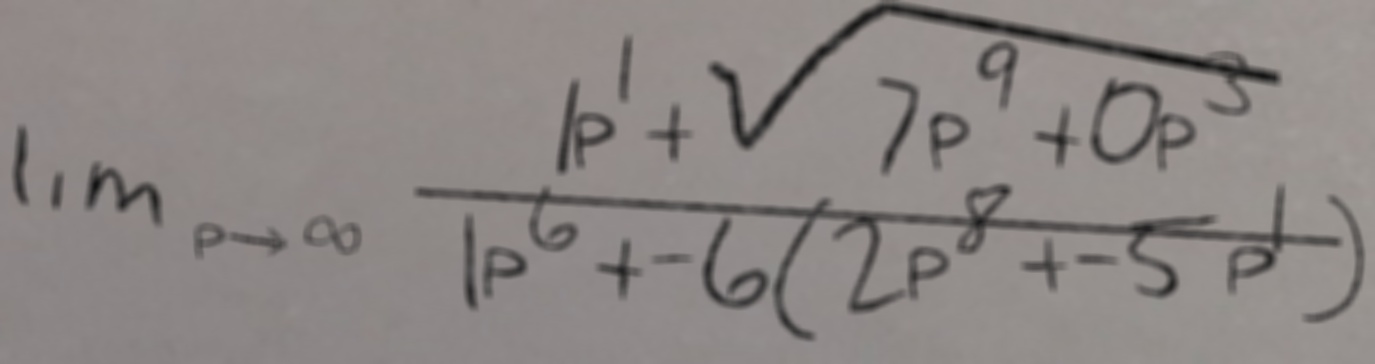 \lim_{p \to \infty} \frac{1p^1 + \sqrt{7p^9 + 0p^3}}{1p^6 + -6(2p^8 + -5p^1)}